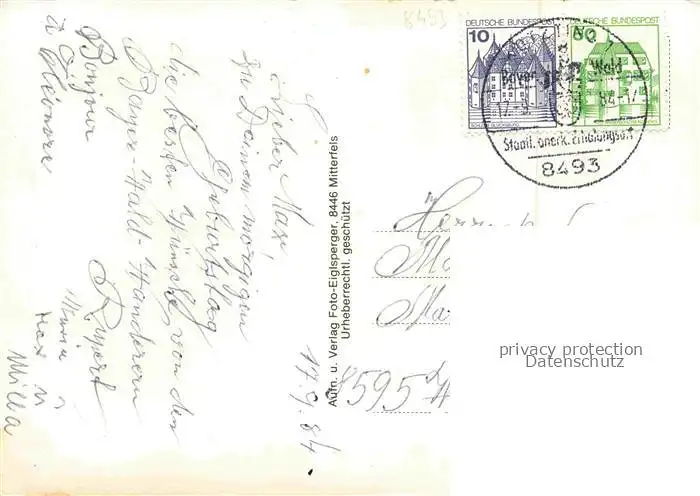 17.9.84
Lieber Max!
Zu Deinem morgigen
Geburtstag
die besten Wünsche von den
Bayer-Wald-Wanderern
Rupert
Bonjour
u. Eleonore
Maria
Max
Milla
Aufn. u. Verlag Foto-Eiglsperger, 8446 Mitterfels
Urheberrechtl. geschützt
8493
DEUTSCHE BUNDESPOST
10
DEUTSCHE BUNDESPOST
Bayer. Wald
Staatl. anerk. Erholungsort
8493
Herrn
8595
privacy protection
Datenschutz